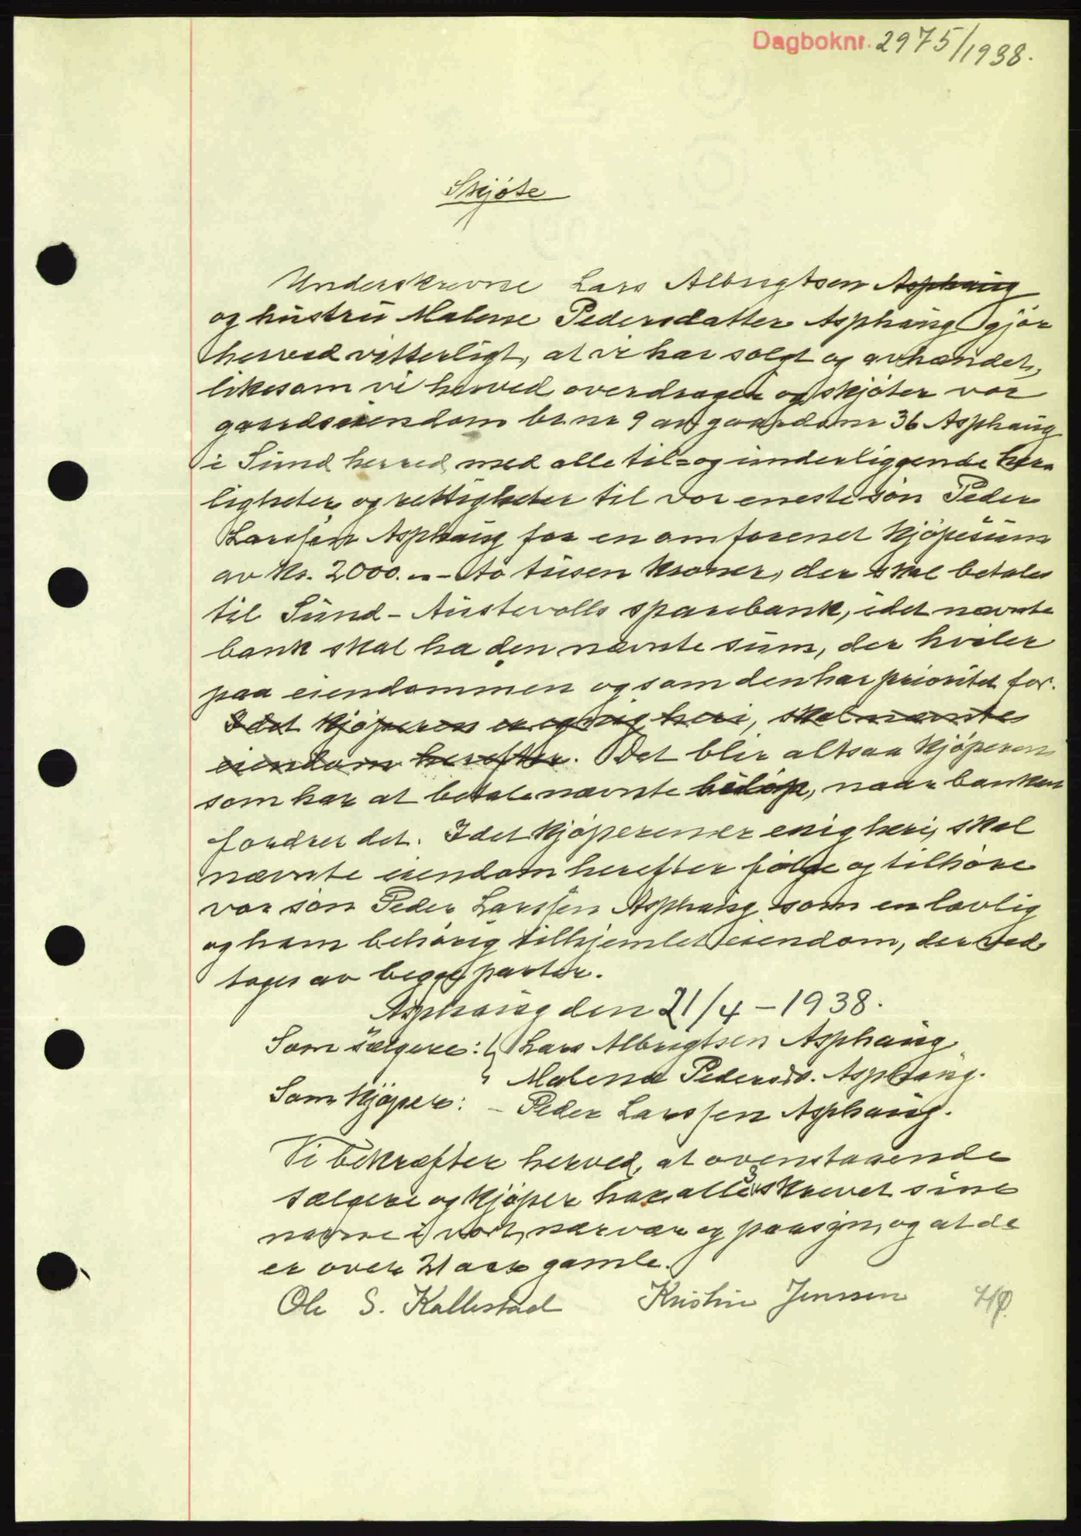 Dagboknr. 2975/1938.
Skjøte
Underskrevne Lars Albrigtsen Asphaug
og hustru Malene Pedersdatter Asphaug gjør
herved vitterligt, at vi har solgt og avhændet,
likesom vi herved overdrager og skjøter vor
gaardseiendom br. nr 9 av gaardsnr 36 Asphaug
i Sund herred, med alle til- og underliggende her-
ligheter og rettigheter til vor eneste søn Peder
Larssen Asphaug for en omforenet kjøpesum
av kr. 2000.-- to tusen kroner, der skal betales
til Sund-Austevolls sparebank, idet nævnte
bank skal ha den nævnte sum, der hviler
paa eiendommen og som den har prioritet for.
Idet kjøperen er enig heri, skal nævnte
eiendom herefter. Det blir altsaa kjøperen
som har at betale nævnte beløp, naar banken
fordrer det. Idet kjøperen er enig heri, skal
nævnte eiendom herefter følge og tilhøre
vor søn Peder Larssen Asphaug som en lovlig
og ham behørig tilhjemlet eiendom, der ved-
tages av begge parter.
Asphaug den 21/4 - 1938.
Som sælgere: Lars Albrigtsen Asphaug
" Malene Pedersd. Asphaug.
Som kjøper: - Peder Larssen Asphaug.
Vi bekræfter herved, at ovenstaaende
sælgere og kjøper har alle 3 skrevet sine
navne i vort nærvær og paasyn, og at de
er over 21 aar gamle.
Ole S. Kallestad Kristine Jenssen